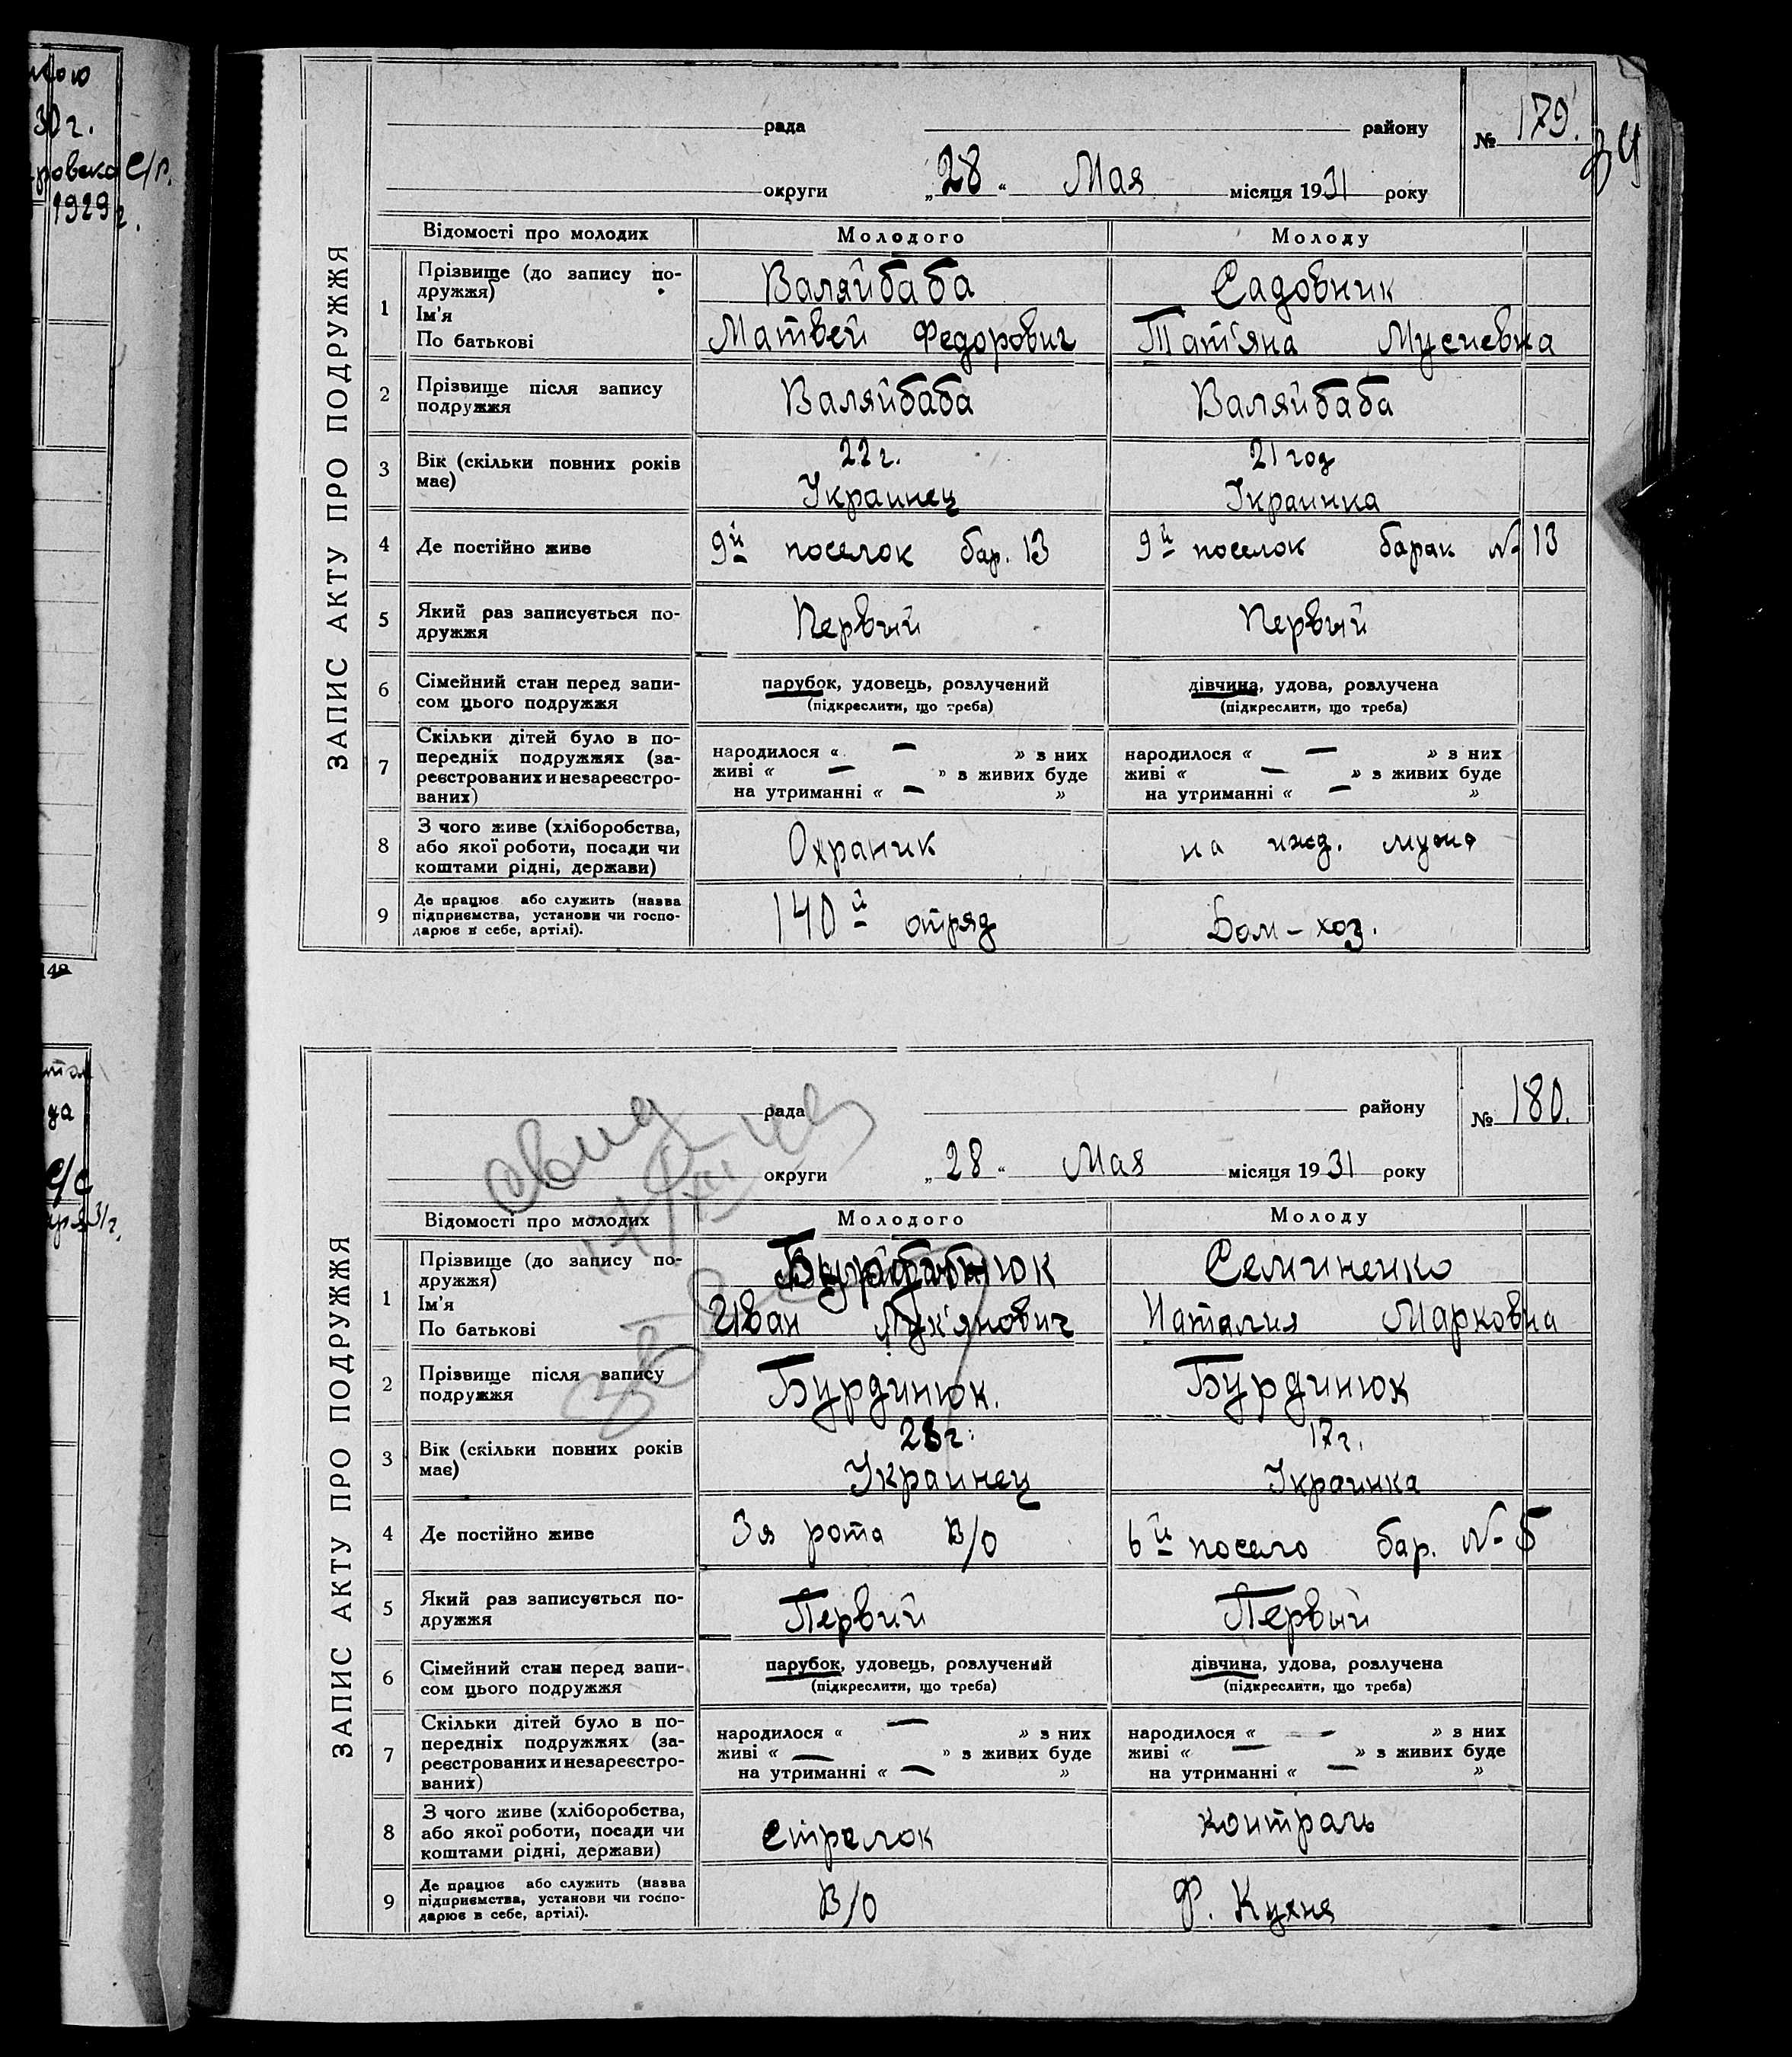 30 г.
С/р.
1929 г.
34
рада району № 179.
округи „28“ Мая місяця 1931 року
ЗАПИС АКТУ ПРО ПОДРУЖЖЯ
Відомості про молодих Молодого Молоду
1 Прізвище (до запису по-
дружжя) Валяйбаба Садовник
Ім'я
По батькові Матвей Федорович Тат'яна Мусиевна
2 Прізвище після запису
подружжя Валяйбаба Валяйбаба
3 Вік (скільки повних років
має) 22 г. 21 год
Украинец Украинка
4 Де постійно живе 9й поселок бар. 13 9й поселок барак № 13
5 Який раз записується по-
дружжя Первый Первый
6 Сімейний стан перед запи-
сом цього подружжя парубок, удовець, розлучений дівчина, удова, розлучена
(підкреслити, що треба) (підкреслити, що треба)
7 Скільки дітей було в по-
передніх подружжях (за-
реєстрованих и незареєстро-
ваних)
народилося « — » з них народилося « — » з них
живі « — » з живих буде живі « — » з живих буде
на утриманні « — » на утриманні « — »
8 З чого живе (хліборобства,
або якої роботи, посади чи
коштами рідні, держави) Охраник на ижд. мужа
9 Де працює або служить (назва
підприємства, установи чи госпо-
дарює в себе, артілі). 140й отряд Дом-хоз.
рада району № 180.
округи „28“ Мая місяця 1931 року
ЗАПИС АКТУ ПРО ПОДРУЖЖЯ
Відомості про молодих Молодого Молоду
1 Прізвище (до запису по-
дружжя) Семиненко
Ім'я
По батькові Иван Лук'янович Наталия Марковна
2 Прізвище після запису
подружжя Бурдинюк. Бурдинюк
3 Вік (скільки повних років
має) 17 г.
Украинец Украинка
4 Де постійно живе 3я рота В/О 6й посело бар. № 5
5 Який раз записується по-
дружжя Первий Первый
6 Сімейний стан перед запи-
сом цього подружжя парубок, удовець, розлучений дівчина, удова, розлучена
(підкреслити, що треба) (підкреслити, що треба)
7 Скільки дітей було в по-
передніх подружжях (за-
реєстрованих и незареєстро-
ваних)
народилося « — » з них народилося « — » з них
живі « — » з живих буде живі « — » з живих буде
на утриманні « — » на утриманні « — »
8 З чого живе (хліборобства,
або якої роботи, посади чи
коштами рідні, держави) Стрелок контраль
9 Де працює або служить (назва
підприємства, установи чи госпо-
дарює в себе, артілі). В/О Ф. Кухня